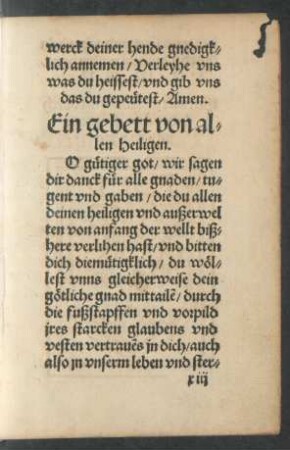 werck deiner hende gnedigk⸗
lich annemen / Verleyhe vns
was du heissest / vnd gib vns
das du gepeütest / Amen.
Ein gebett von al⸗
len Heiligen.
O gütiger got / wir sagen
dir danck für alle gnaden / tu⸗
gent vnd gaben / die du allen
deinen heiligen vnd außerwel
ten von anfang der wellt biß⸗
here verlihen hast / vnd bitten
dich diemütigklich / du wöl⸗
lest vnns gleicherweise dein
götliche gnad mittailē / durch
die fußstapffen vnd vorpild
jres starcken glaubens vnd
vesten vertrauēs jn dich / auch
also jn vnserm leben vnd ster⸗
xiij